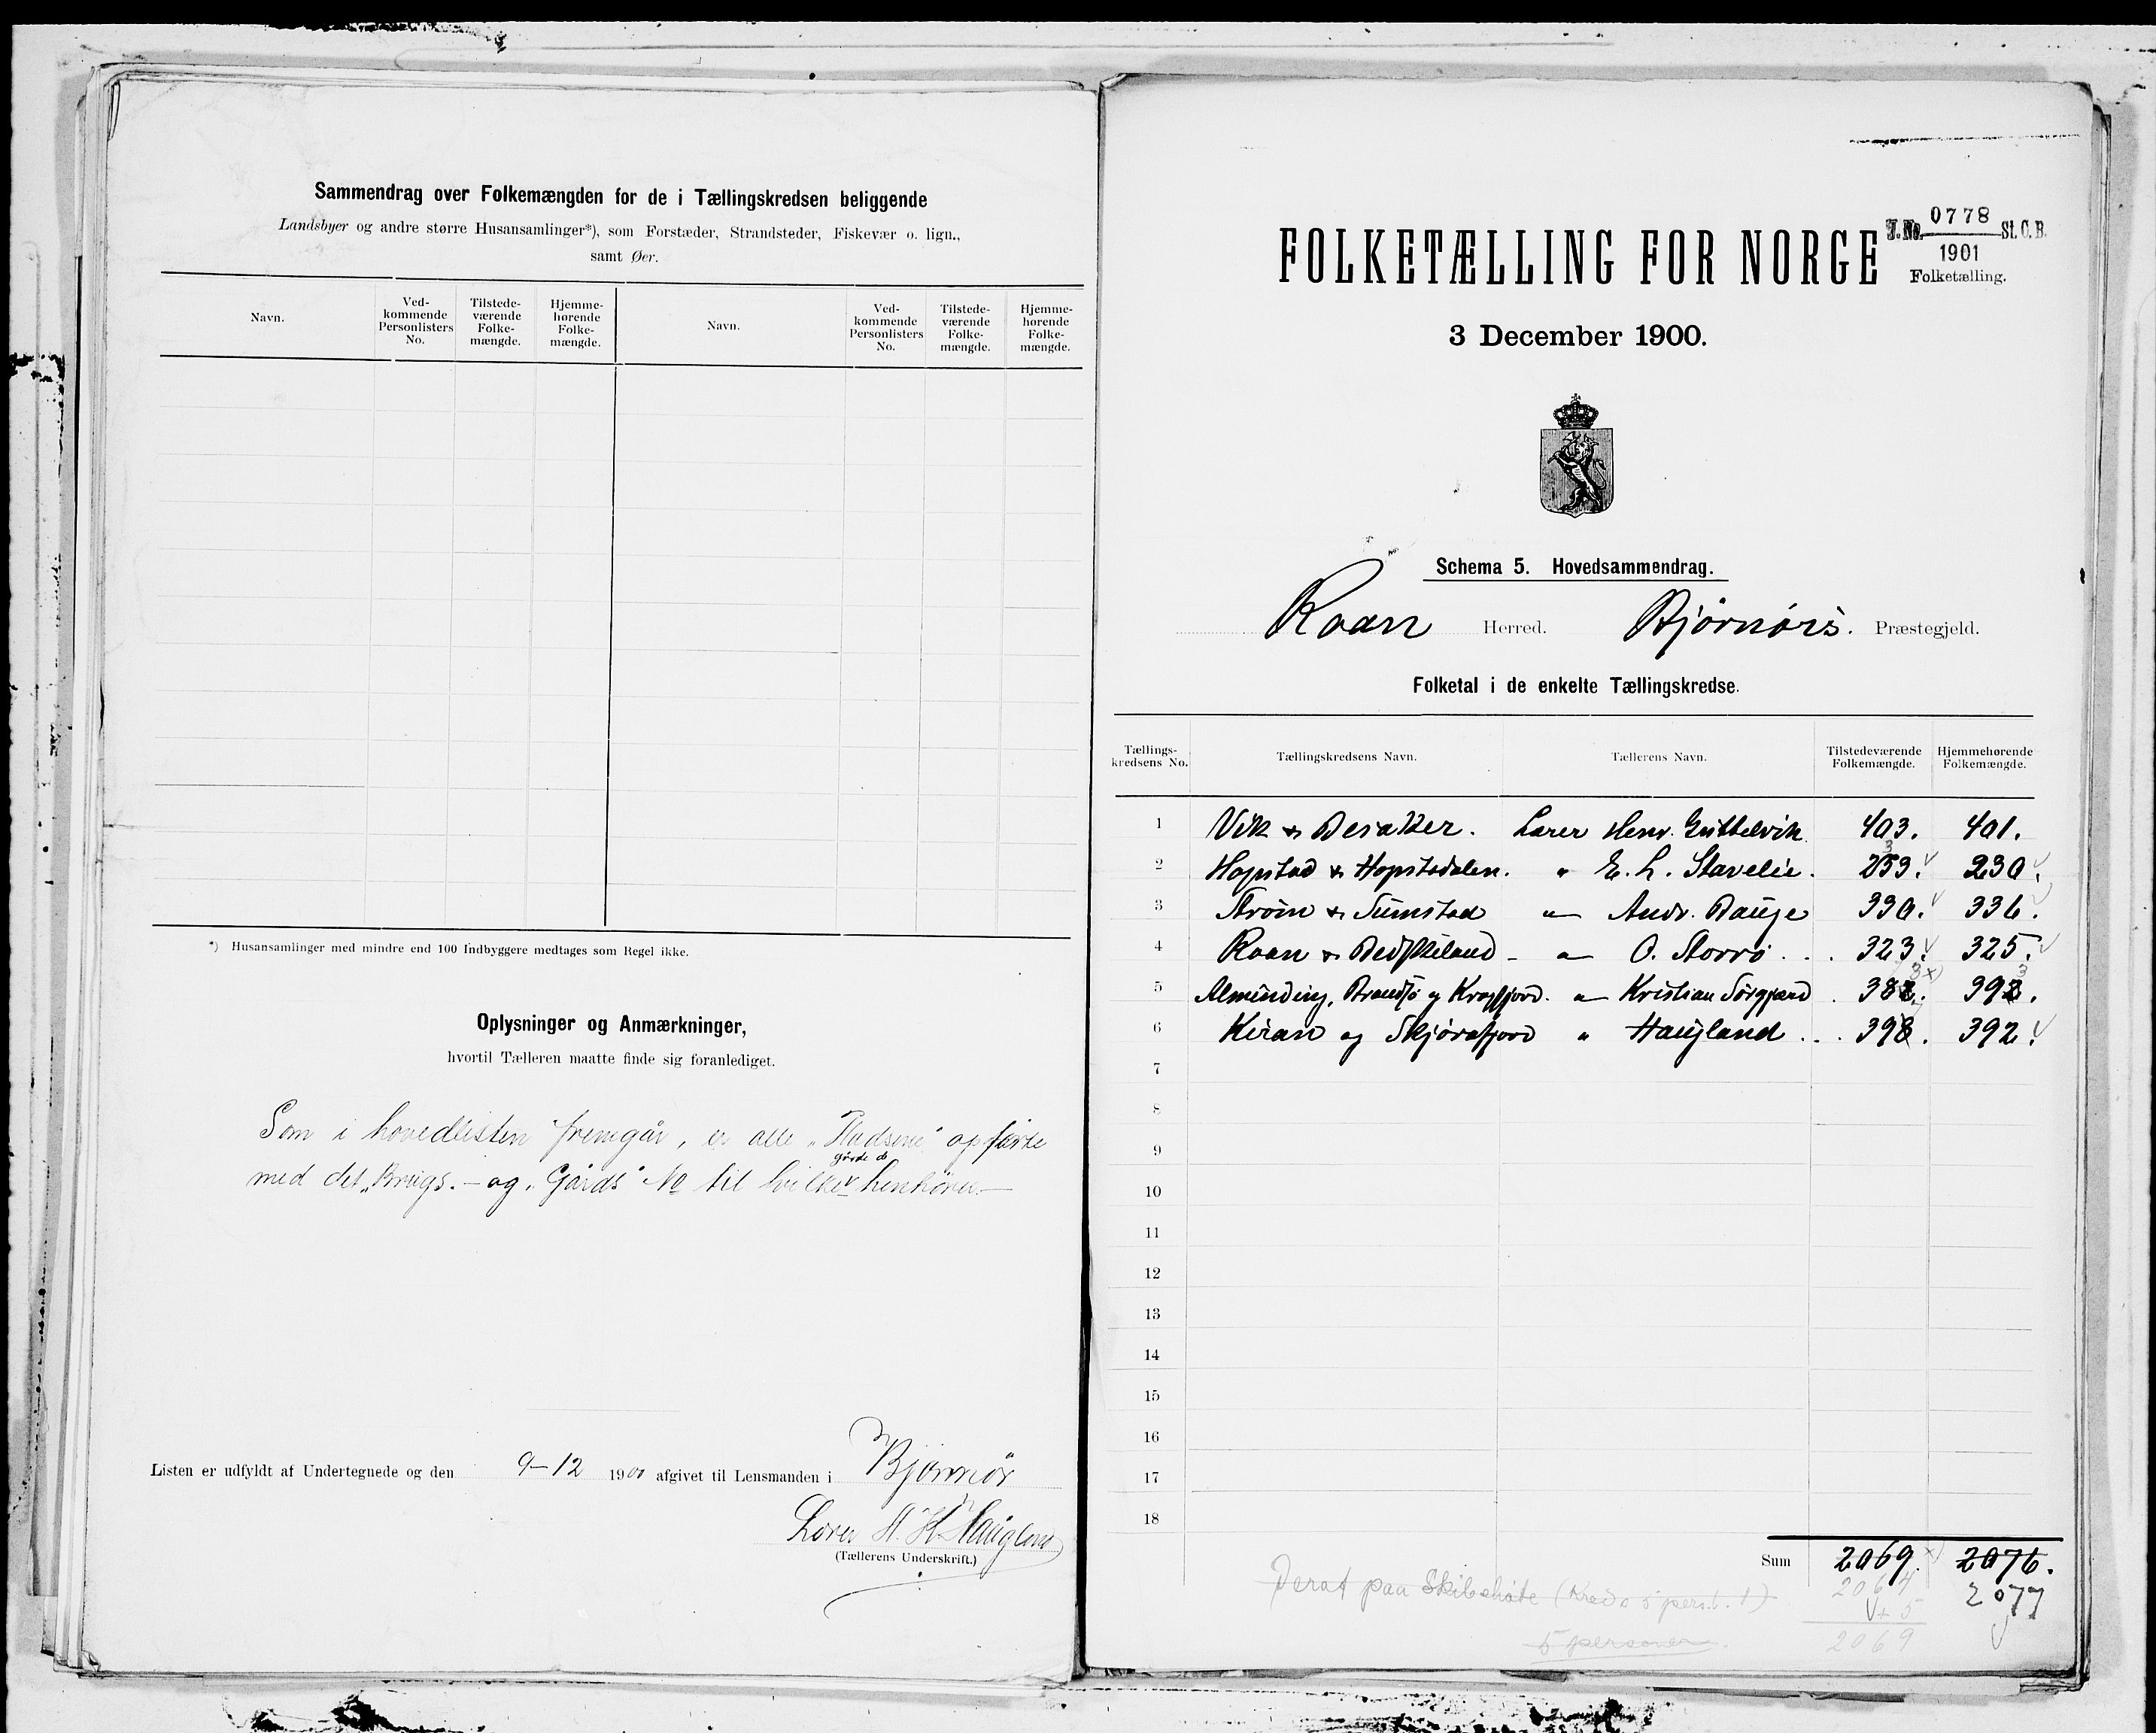 Sammendrag over Folkemængden for de i Tællingskredsen beliggende
Landsbyer og andre større Husansamlinger*), som Forstæder, Strandsteder, Fiskevær o. lign.,
samt Øer.
Navn. Ved-kommende Personlisters No. Tilstede-værende Folke-mængde. Hjemme-hørende Folke-mængde. Navn. Ved-kommende Personlisters No. Tilstede-værende Folke-mængde. Hjemme-hørende Folke-mængde.
*) Husansamlinger med mindre end 100 Indbyggere medtages som Regel ikke.
Oplysninger og Anmærkninger,
hvortil Tælleren maatte finde sig foranlediget.
Som i hovedlisten fremgår, er alle „Pladsene" opførte
gårde de
med det „Brugs.- og „Gårds" No til hvilke henhører.—
Listen er udfyldt af Undertegnede og den 9-12 1900 afgivet til Lensmanden i Bjørnør
Lærer H. Haugland
(Tællerens Underskrift.)
FOLKETÆLLING FOR NORGE
J. No. 0778 St. C. B.
1901
Folketælling.
3 December 1900.
Schema 5. Hovedsammendrag.
Roan Herred. Bjørnørs. Præstegjeld.
Folketal i de enkelte Tællingskredse.
Tællings-kredsens No. Tællingskredsens Navn. Tællerens Navn. Tilstedeværende Folkemængde. Hjemmehørende Folkemængde.
1 Vik & Besaker. Lærer Henr. Guttelvik 403. 401.
3
2 Hopstad & Hopstadalen. " E. L. Stavelie. 253. 230.
3 Strøm & Sumstad " Andr. Bauge 330. 336.
4 Roan & Beskeland - " O. Storrø . . 323. 325.
3 x) 3
5 Alminding, Brandsø og Kragfjord. " Kristian Sørgjærd . 382. 392.
6 Kiran og Skjørafjord " Haugland . . . 398. 392.
7
8
9
10
11
12
13
14
15
16
17
18
Sum 2069. x) 2076.
Derat paa Skibshåte (Kreds 5 pers.l. 1) 2064 2077
+ 5
5 personer. 2069